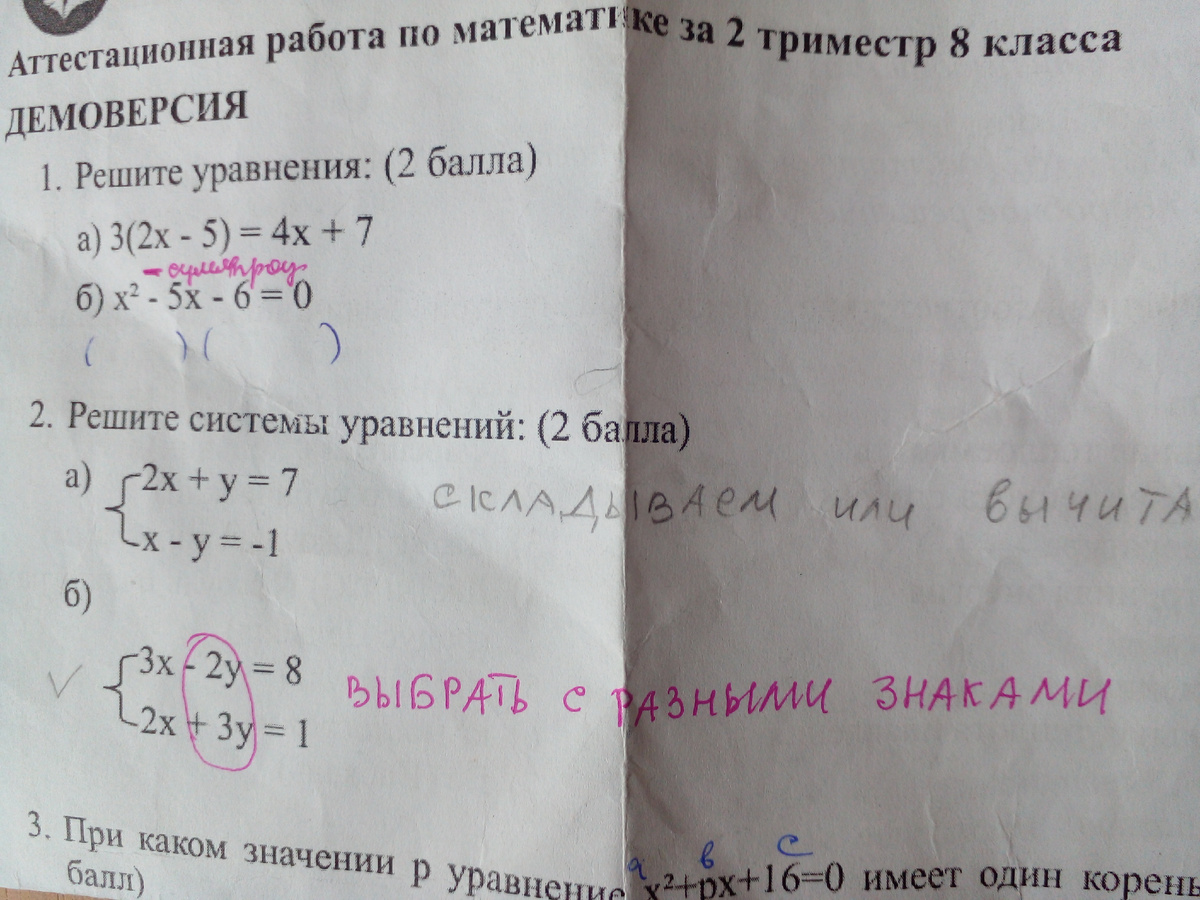 Аттестационная работа по математике за 2 триместр 8 класса
ДЕМОВЕРСИЯ
1. Решите уравнения: (2 балла)
а) 3(2x - 5) = 4x + 7
б) x² - 5x - 6 = 0
( ) ( )
2. Решите системы уравнений: (2 балла)
а) 2x + y = 7
x - y = -1
складываем или вычита
б)
3x - 2y = 8
2x + 3y = 1
ВЫБРАТЬ С РАЗНЫМИ ЗНАКАМИ
a в c
3. При каком значении p уравнение x²+px+16=0 имеет один корень
балл)